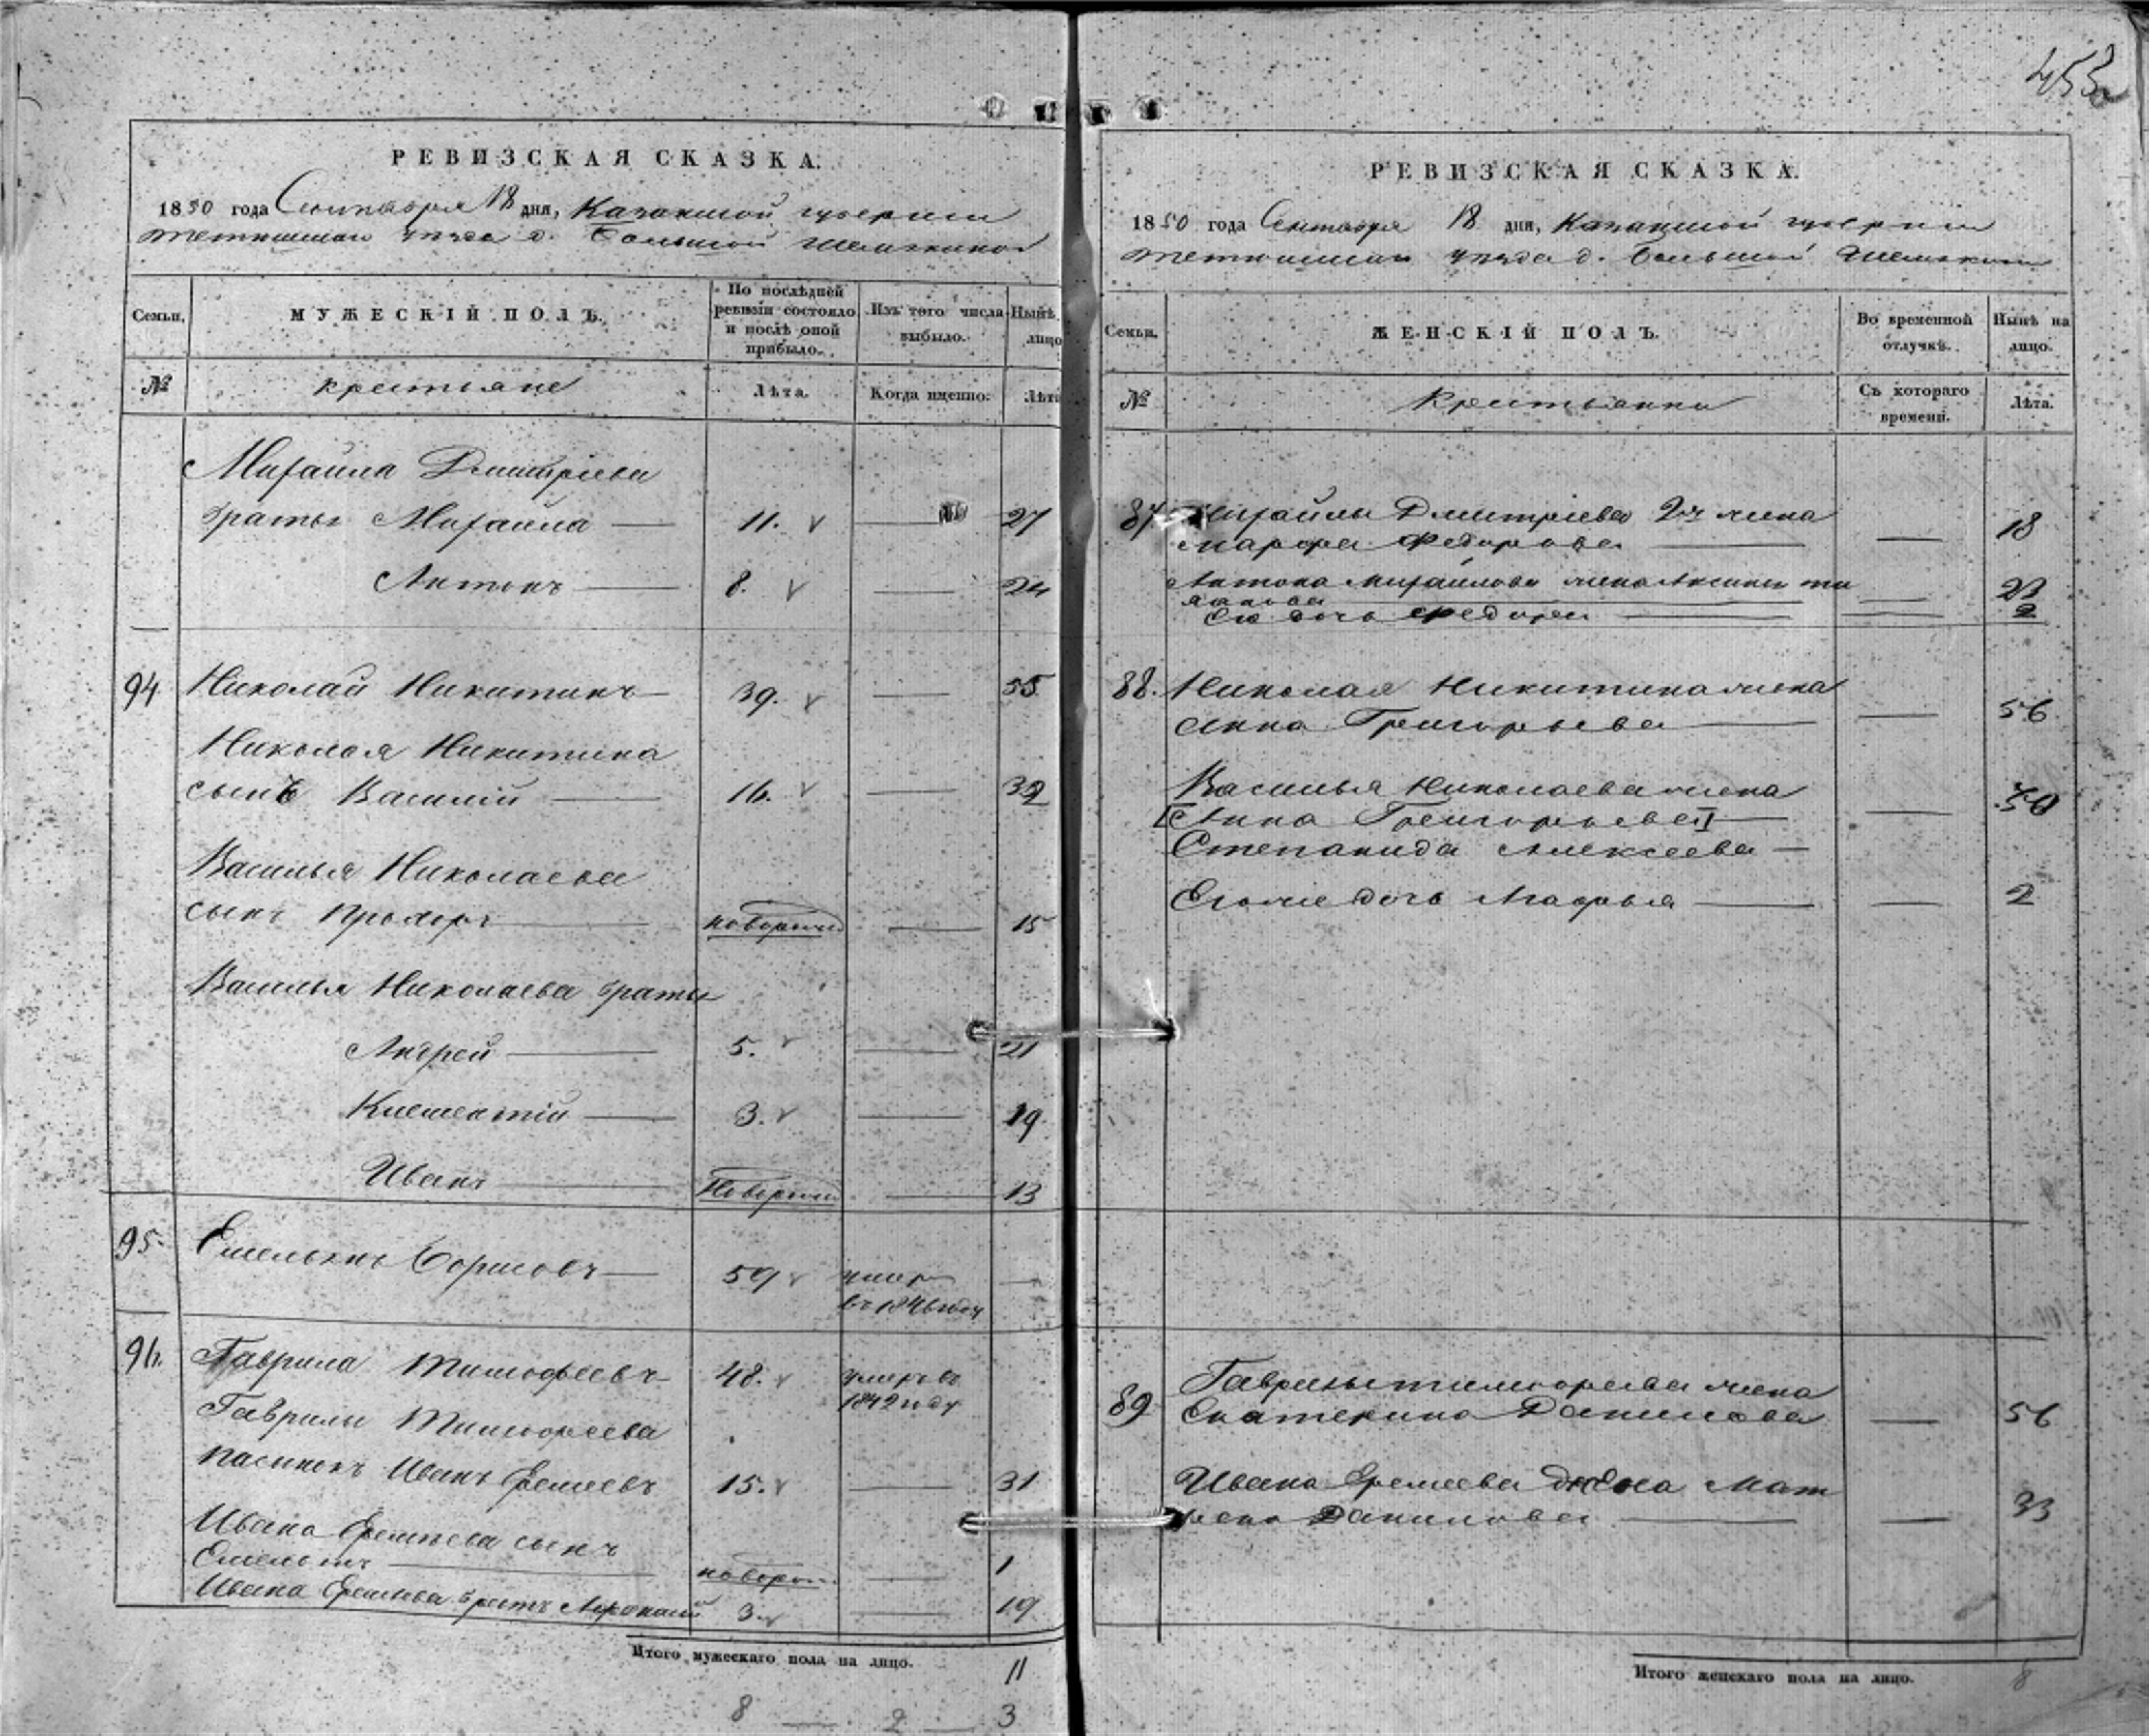 453
РЕВИЗСКАЯ СКАЗКА.
1850 года Сентября 18 дня, Казанской губернии
Тетюшскаго уезда д. Большой Шемякиной
Семьи.
МУЖЕСКІЙ ПОЛЪ.
По послѣдней ревизіи состояло и послѣ оной прибыло.
Изъ того числа выбыло.
Нынѣ лицо
№
крестьяне
Лѣта.
Когда именно.
Лѣта
Михайла Дмитріева
братья Михайла 11. 27
Антонъ 8. 24
94 Николай Никитинъ 39. 55
Николая Никитина
сынъ Василій 16. 32
Василья Николаева
сынъ Прохоръ новорожд 15
Василья Николаева братья
Андрей 5. 21
Клементій 3. 19
Иванъ Новорожд 13
95. Емельянъ Борисовъ 59 умеръ
въ 1846 году
96. Гаврила Тимофеевъ 48. умеръ въ
1842 году
Гаврилы Тимофеева
пасынокъ Иванъ Еремеевъ 15. 31
Ивана Еремеева сынъ
Емельянъ новорож 1
Ивана Еремеева братъ Афонасій 3. 19
Итого мужескаго пола на лицо. 11
8 2 3
РЕВИЗСКАЯ СКАЗКА.
1850 года Сентября 18 дня, Казанской губерніи
Тетюшскаго уезда д. Большой Шемякиной
Семьи.
ЖЕНСКІЙ ПОЛЪ.
Во временной отлучкѣ.
Нынѣ на лицо.
№
Крестьянки
Съ котораго времени.
Лѣта.
87 Михайлы Дмитріева 2я жена
Марфа Федорова 18
Антона Михайлова жена Аксинья
23
Ею дочь Федора 2
88. Николая Никитина жена
Анна Григорьева 56
Василья Николаева жена
[Анна Григорьева] 30
Степанида Алексеева
Егоже дочь Марфья 2
89 Гаврилы Тимофеева жена
Екатерина Данилова 56
Ивана Еремеева жена Мат
рена Данилова 33
Итого женскаго пола на лицо. 8